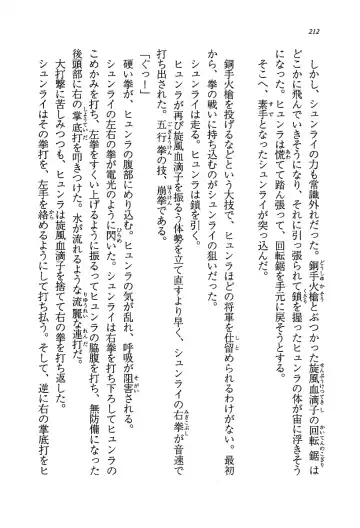 212
しかし、シュンライの力も常識外れだった。鋼手火槍とぶつかった旋風血滴子の回転鋸は
どこかに飛んでいきそうになり、それに引っ張られて鎖を握ったヒュンラの体が宙に浮きそう
になった。ヒュンラは慌てて踏ん張って、回転鋸を手元に戻そうとする。
そこへ、素手となったシュンライが突っ込んだ。
鋼手火槍を投げるなどという大技で、ヒュンラほどの将軍を仕留められるわけがない。最初
から、拳の戦いに持ち込むのがシュンライの狙いだった。
シュンライは走る。ヒュンラは鎖を引く。
ヒュンラが再び旋風血滴子を振るう体勢を立て直すより早く、シュンライの右拳が音速で
打ち出された。五行拳の技、崩拳である。
「ぐっ！」
硬い拳が、ヒュンラの腹部にめり込む。ヒュンラの気が乱れ、呼吸が阻害される。
シュンライの左右の拳が電光のように閃いた。シュンライは右拳を打ち下ろしてヒュンラの
こめかみを打ち、左拳をすくい上げるように振るってヒュンラの脇腹を打ち、無防備になった
後頭部に右の掌底打を叩きつけた。水が流れるような流麗な連打だ。
大打撃に苦しみつつも、ヒュンラは旋風血滴子を捨てて右の拳を打ち返した。
シュンライはその拳打を、左手を絡めるようにして打ち払う。そして、逆に右の掌底打をヒ